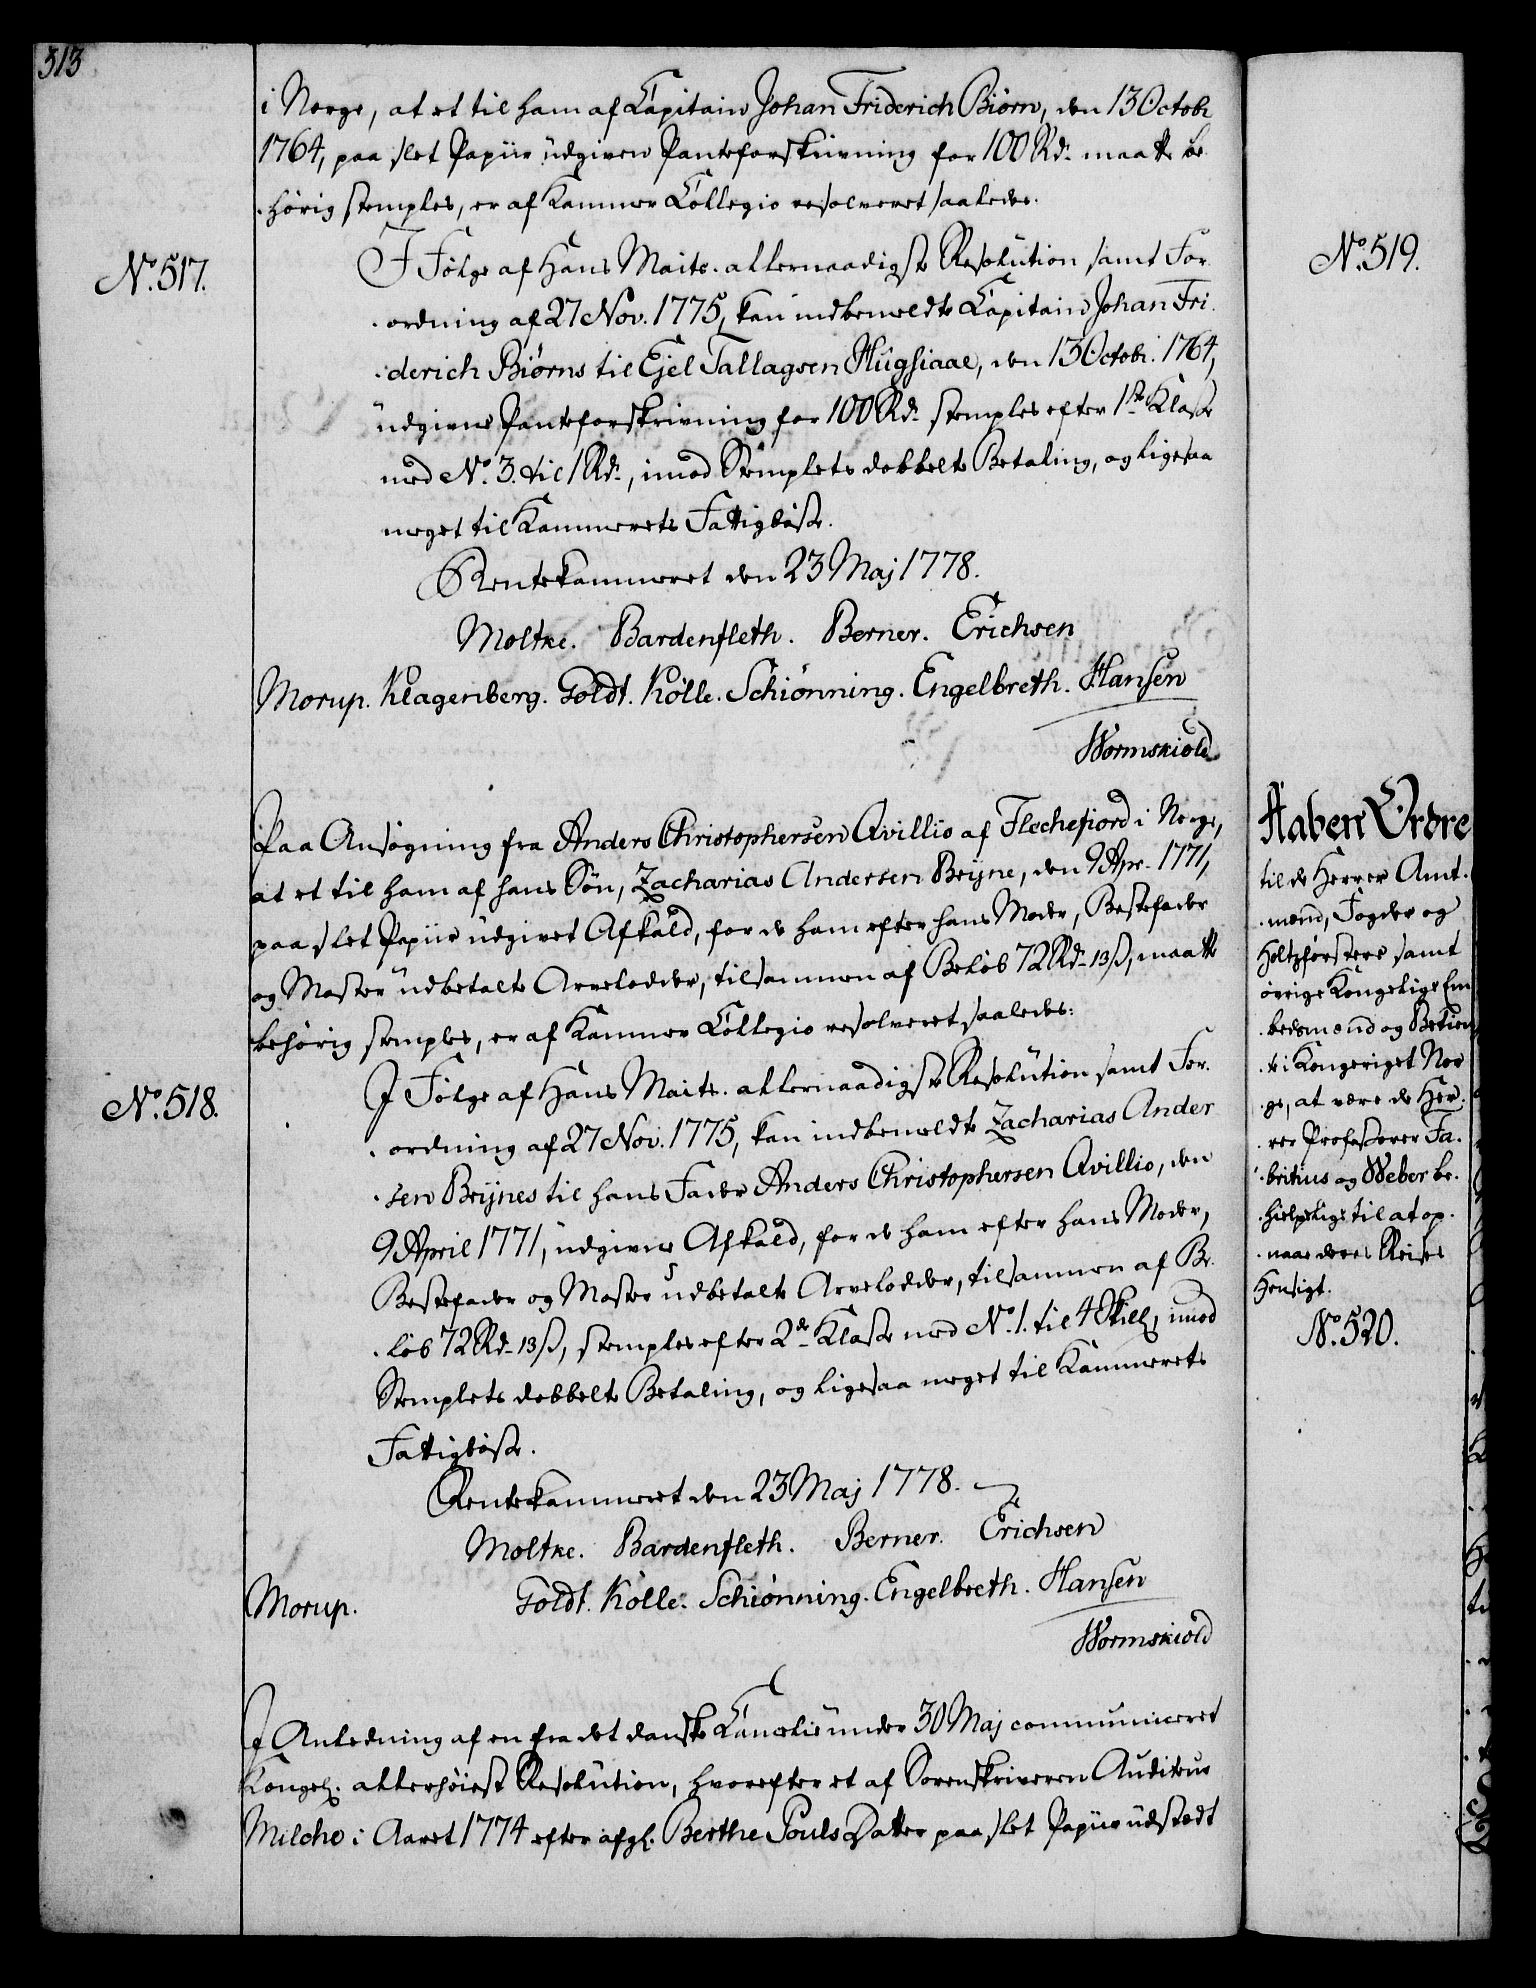 313
i Norge, at et til ham af Capitain Johan Friderich Biørn, den 13 Octobr
1764, paa slet Papiir udgiven Panteforskrivning for 100 Rd. maatte be
hørig stemples, er af Kammer Collegio resolveret saaledes.
No. 517.
I Følge af Hans Maits. allernaadigste Resolution samt For
ordning af 27 Nov. 1775, kan indbemeldte Capitain Johan Fri
derich Biørns til Ejel Tallagsen Hugsiaae, den 13 Octobr. 1764,
udgivne Panteforskrivning for 100 Rd. stemples efter 1ste Klasse
med No. 3. til 1 Rd., imod Stemplets dobbelte Betaling, og ligesaa
meget til Kammerets Fattigbøsse.
Rentekammeret den 23 Maj 1778.
Moltke. Bardenfleth. Berner. Erichsen
Morup. Klagenberg. Goldt. Kølle. Schiønning. Engelbreth. Hansen
Wormskiold
Paa Ansøgning fra Anders Christophersen Qvillio af Flechefiord i Norge,
at et til ham af hans Søn, Zacharias Andersen Brÿne, den 9 Apr. 1771,
paa slet Papiir udgivet Afkald, for de ham efter hans Moder, Bestefader
og Moster udbetalte Arvelodder, tilsammen af Beløb 72 Rd. 13 ß, maatte
behørig stemples, er af Kammer Collegio resolveret saaledes:
No. 518.
I Følge af Hans Maits. allernaadigste Resolution samt For
ordning af 27 Nov. 1775, kan indbemeldte Zacharias Ander
sen Brÿnes til hans Fader Anders Christophersen Qvillio, den
9 April 1771, udgivne Afkald, for de ham efter hans Moder,
Bestefader og Moster udbetalte Arvelodder, tilsammen af Be
løb 72 Rd. 13 ß, stemples efter 2de Klasse med No. 1. til 4 Skill, imod
Stemplets dobbelte Betaling, og ligesaa meget til Kammerets
Fattigbøsse.
Rentekammeret den 23 Maj 1778.
Moltke. Bardenfleth. Berner. Erichsen
Morup. Goldt. Kølle. Schiønning. Engelbreth. Hansen
Wormskiold
I Anledning af en fra det danske Cancelie under 30 Maj communiceret
Kongel. allerhøieste Resolution, hvorefter et af Sorenskriveren Auditeur
Milche i Aaret 1774 efter afgl. Berthe Pouls Datter paa slet Papiir udstedt
No. 519.
Aaben Ordre
til de Herrer Amt
mænd, Fogder og
Holtzførstere samt
øvrige Kongelige Em
bedsmænd og Betien
te i Kongeriget Nor
ge, at være de Her
rer Professorer Fa
britius og Weber be
hielpelige til at op
naae deres Reises
Hensigt.
No. 520.